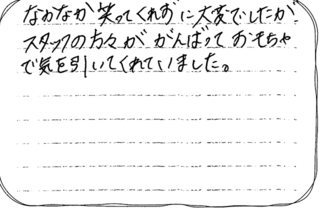 なかなか笑ってくれずに大変でしたが
スタッフの方々ががんばっておもちゃ
で気を引いてくれていました。